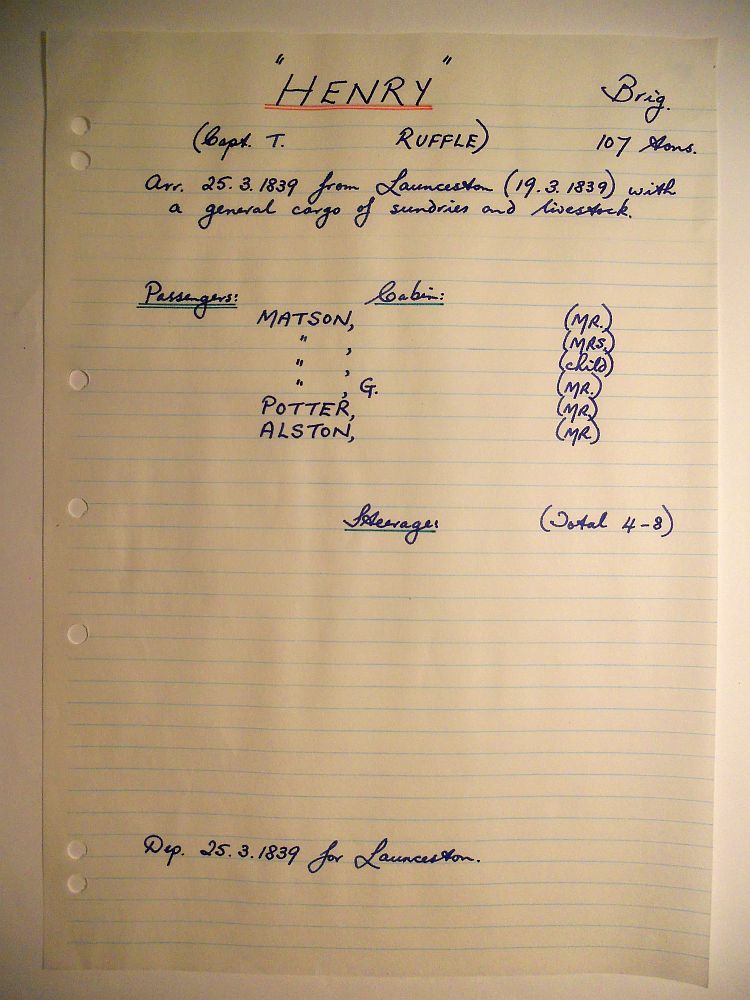 "HENRY" Brig.
(Capt. T. RUFFLE) 107 tons.
Arr. 25.3.1839 from Launceston (19.3.1839) with
a general cargo of sundries and livestock.
Passengers: Cabin:
MATSON, (MR.)
" , (MRS.)
" , (child)
" , G. (MR.)
POTTER, (MR.)
ALSTON, (MR)
Steerage: (Total 4-8)
Dep. 25.3.1839 for Launceston.